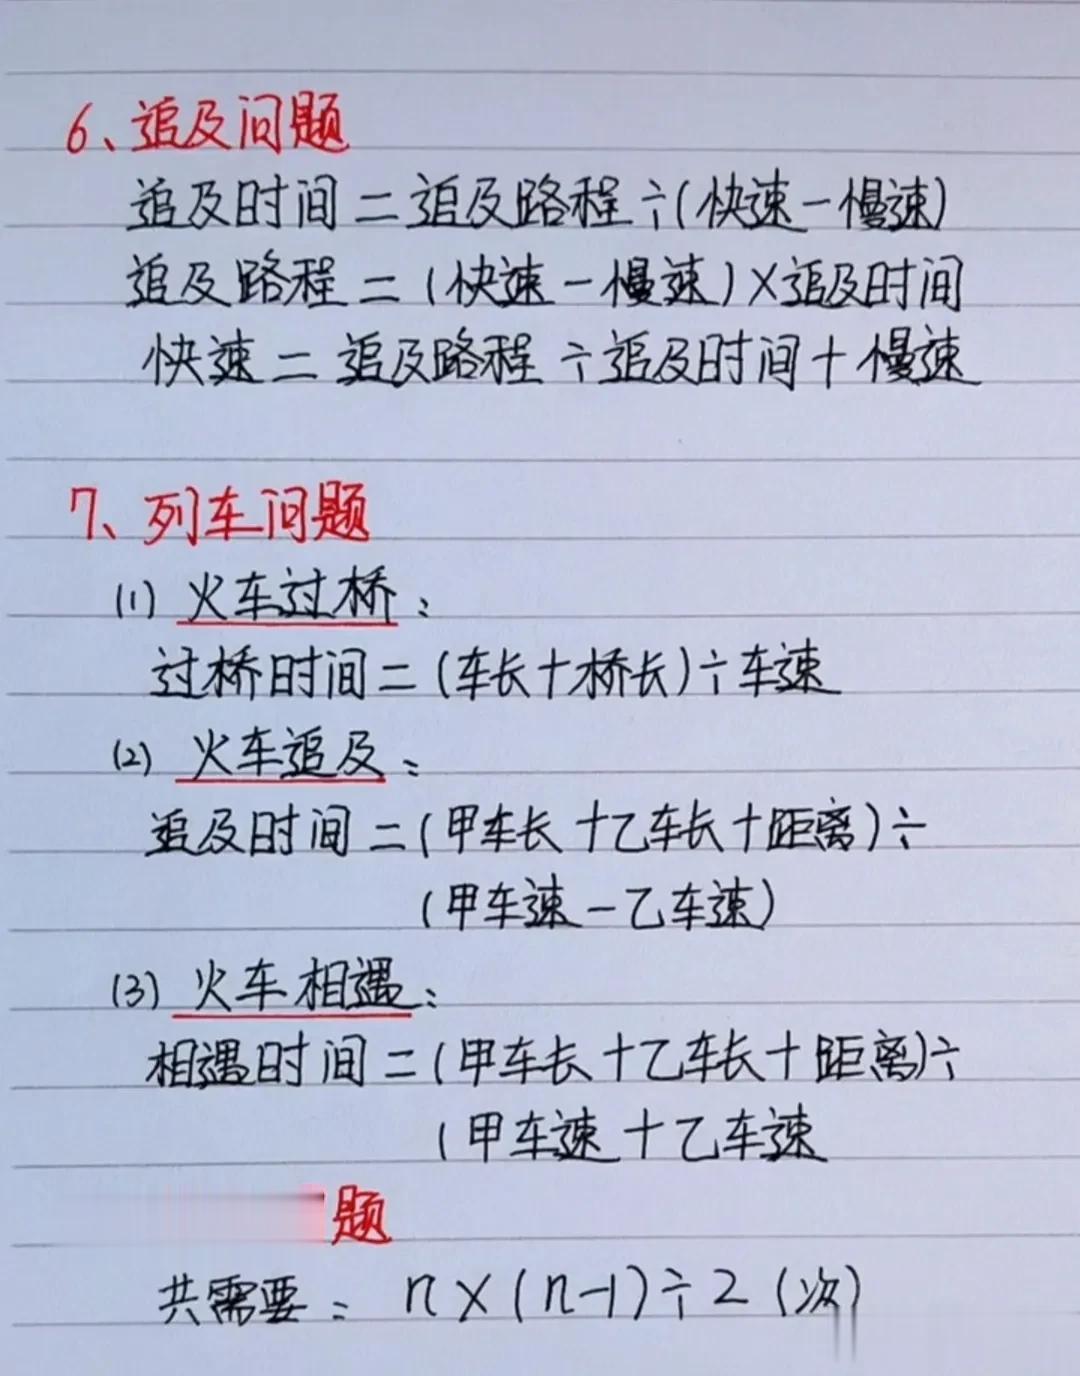 6、追及问题
追及时间=追及路程÷(快速-慢速)
追及路程=(快速-慢速)×追及时间
快速=追及路程÷追及时间+慢速
7、列车问题
(1) 火车过桥:
过桥时间=(车长+桥长)÷车速
(2) 火车追及:
追及时间=(甲车长+乙车长+距离)÷
(甲车速-乙车速)
(3) 火车相遇:
相遇时间=(甲车长+乙车长+距离)÷
(甲车速+乙车速
题
共需要: n×(n-1)÷2 (次)